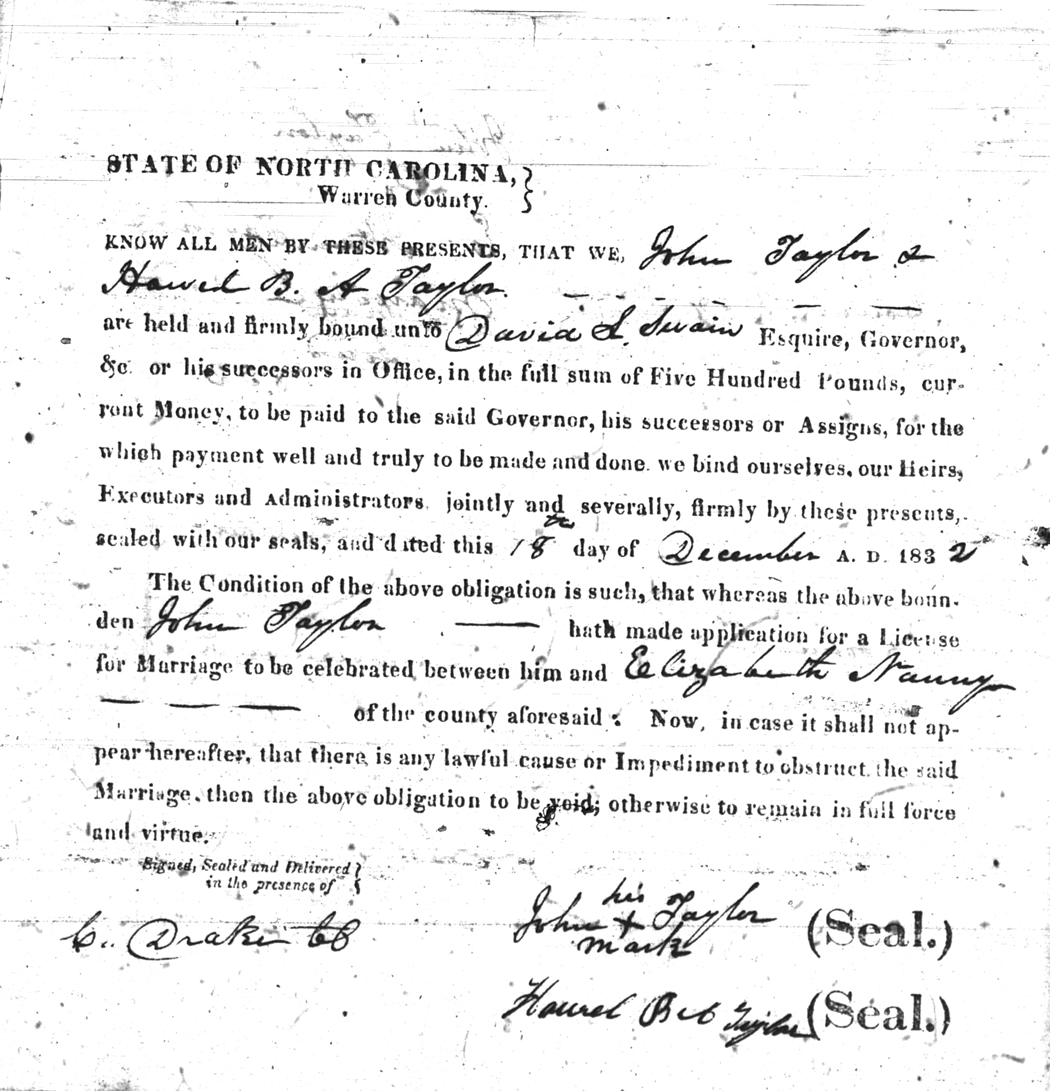 STATE OF NORTH CAROLINA,
Warren County.
KNOW ALL MEN BY THESE PRESENTS, THAT WE, John Taylor &
Howel B. A Taylor
are held and firmly bound unto David L. Swain Esquire, Governor,
&c. or his successors in Office, in the full sum of Five Hundred Pounds, cur-
rent Money, to be paid to the said Governor, his successors or Assigns, for the
which payment well and truly to be made and done. we bind ourselves, our Heirs,
Executors and Administrators, jointly and severally, firmly by these presents,
sealed with our seals, and dated this 18th day of December A. D. 1832
The Condition of the above obligation is such, that whereas the above boun-
den John Taylor — hath made application for a License
for Marriage to be celebrated between him and Elizabeth Nanny
— — — of the county aforesaid: Now, in case it shall not ap-
pear hereafter, that there is any lawful cause or Impediment to obstruct the said
Marriage, then the above obligation to be void; otherwise to remain in full force
and virtue.
Signed, Sealed and Delivered
in the presence of
C. Drake CC
his
John + Taylor (Seal.)
mark
Howel Taylor (Seal.)